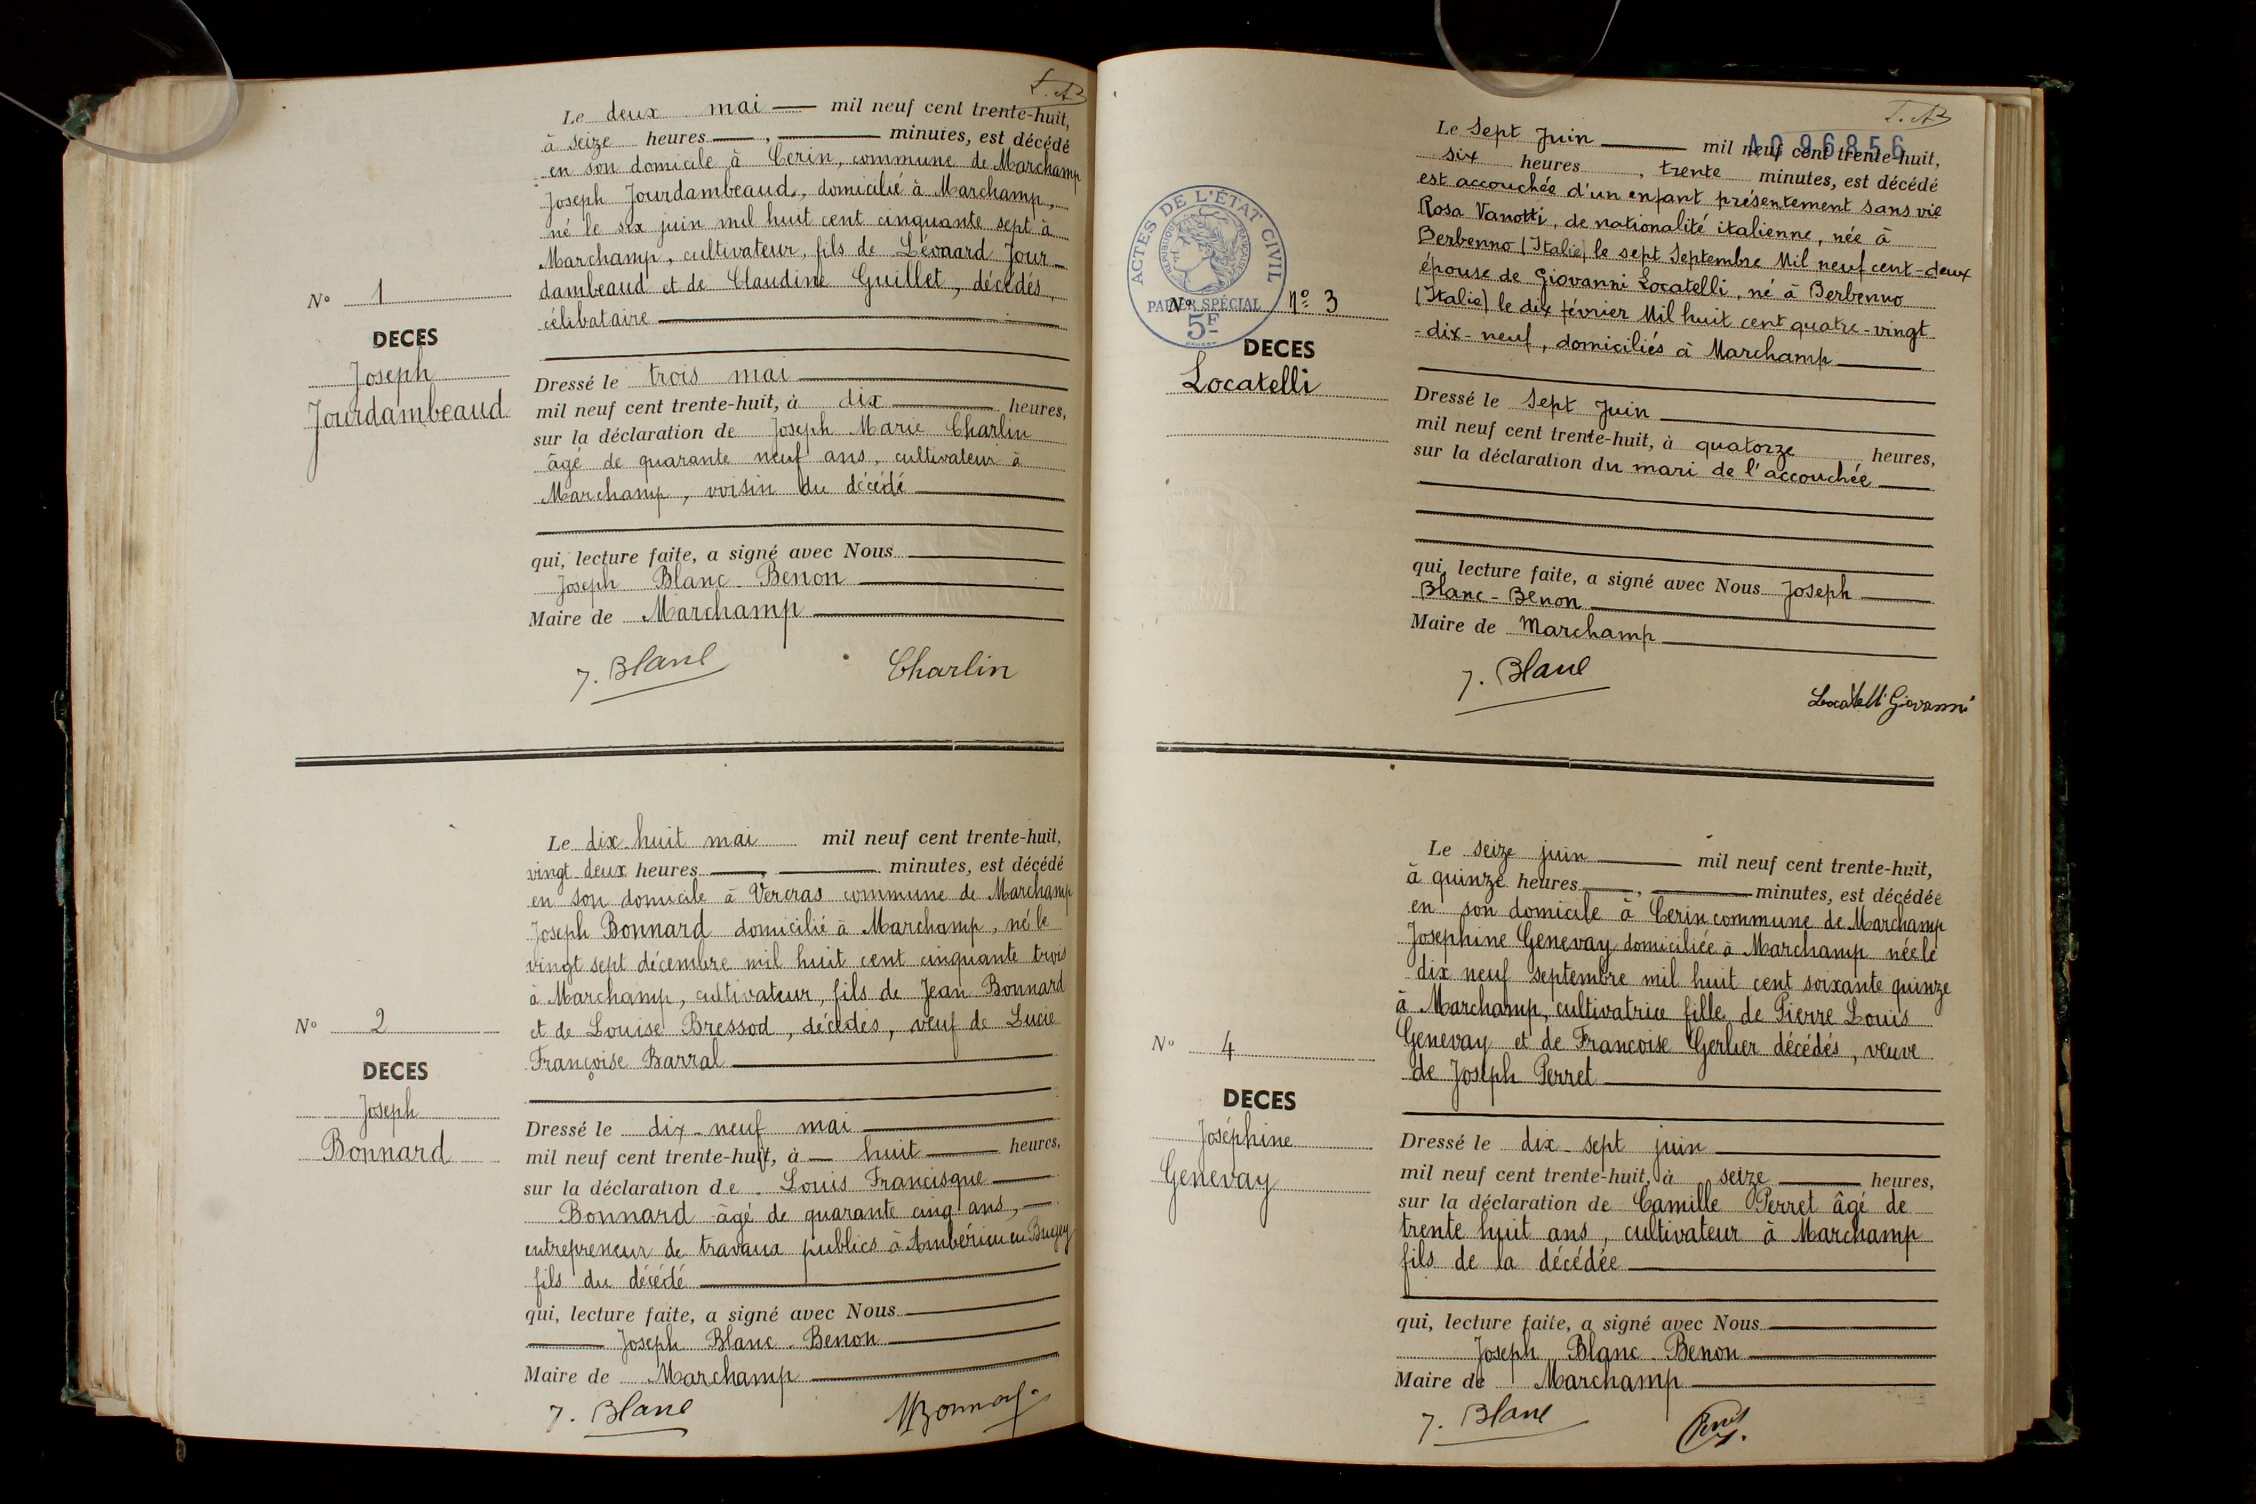 Le deux mai mil neuf cent trente-huit,
à seize heures , minutes, est décédé
en son domicile à Cerin, commune de Marchamp
Joseph Jourdambeaud, domicilié à Marchamp,
né le six juin mil huit cent cinquante sept à
Marchamp, cultivateur, fils de Léonard Jour-
dambeaud et de Claudine Guillet, décédés,
célibataire
No 1
DECES
Joseph
Jourdambeaud
Dressé le trois mai
mil neuf cent trente-huit, à dix heures,
sur la déclaration de Joseph Marie Charlin
âgé de quarante neuf ans, cultivateur à
Marchamp, voisin du décédé
qui, lecture faite, a signé avec Nous
Joseph Blanc-Benon
Maire de Marchamp
J. Blanc Charlin
Le dix-huit mai mil neuf cent trente-huit,
vingt-deux heures , minutes, est décédé
en son domicile à Vercras commune de Marchamp
Joseph Bonnard domicilié à Marchamp, né le
vingt sept décembre mil huit cent cinquante trois
à Marchamp, cultivateur, fils de Jean Bonnard
et de Louise Bressod, décédés, veuf de Lucie
Françoise Barral
No 2
DECES
Joseph
Bonnard
Dressé le dix-neuf mai
mil neuf cent trente-huit, à huit heures,
sur la déclaration de Louis Francisque
Bonnard âgé de quarante cinq ans,
entrepreneur de travaux publics à Ambérieu en Bugey
fils du décédé
qui, lecture faite, a signé avec Nous
Joseph Blanc-Benon
Maire de Marchamp
J. Blanc Bonnard
A096856
Le Sept Juin mil neuf cent trente-huit,
six heures , trente minutes, est décédé
est accouchée d'un enfant présentement sans vie
Rosa Vanotti, de nationalité italienne, née à
Berbenno (Italie) le sept Septembre Mil neuf cent-deux
épouse de Giovanni Locatelli, né à Berbenno
(Italie) le dix février Mil huit cent quatre-vingt
-dix-neuf, domiciliés à Marchamp
ACTES DE L'ÉTAT CIVIL
RÉPUBLIQUE FRANÇAISE
PAPIER SPÉCIAL
5F
No no 3
DECES
Locatelli
Dressé le Sept Juin
mil neuf cent trente-huit, à quatorze heures,
sur la déclaration du mari de l'accouchée
qui, lecture faite, a signé avec Nous Joseph
Blanc-Benon
Maire de Marchamp
J. Blanc Locatelli Giovanni
Le seize juin mil neuf cent trente-huit,
à quinze heures , minutes, est décédée
en son domicile à Cerin commune de Marchamp
Josephine Genevay domiciliée à Marchamp née le
dix neuf septembre mil huit cent soixante quinze
à Marchamp, cultivatrice fille de Pierre Louis
Genevay et de Francoise Gerlier décédés, veuve
de Joseph Perret
No 4
DECES
Joséphine
Genevay
Dressé le dix-sept juin
mil neuf cent trente-huit, à seize heures,
sur la déclaration de Camille Perret âgé de
trente huit ans, cultivateur à Marchamp
fils de la décédée
qui, lecture faite, a signé avec Nous
Joseph Blanc-Benon
Maire de Marchamp
J. Blanc